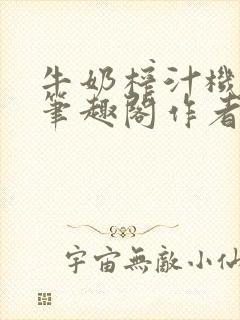 牛奶榨汁機
筆趣閣作者
宇宙無敵小仙